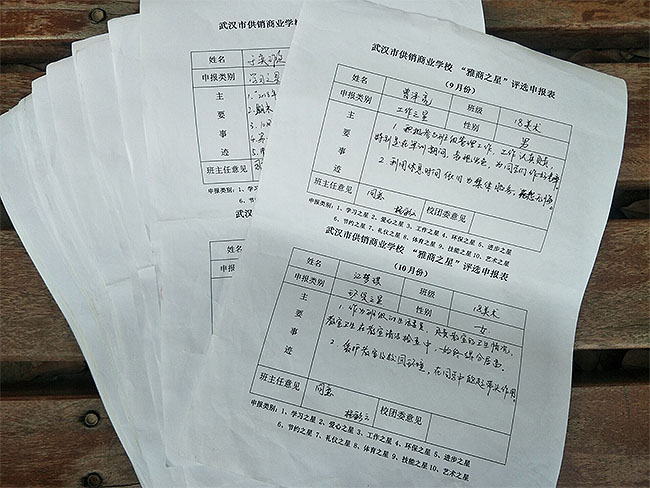 武汉市供销商业学校 “雅商之星”评选申报表
（9月份）
姓名 曹泽亮 班级 18美术
申报类别 工作之星 性别 男
主要事迹
1. 积极参与班级管理工作，工作认真负责，
特别是在军训期间，表现突出，为同学们作好表率
2. 利用休息时间 为集体服务，无怨无悔。
班主任意见 同意 校团委意见
申报类别：1、学习之星 2、爱心之星 3、工作之星 4、环保之星 5、进步之星
6、节约之星 7、礼仪之星 8、体育之星 9、技能之星 10、艺术之星
武汉市供销商业学校 “雅商之星”评选申报表
（10月份）
姓名 江梦琪 班级 18美术
申报类别 环保之星 性别 女
主要事迹
1. 作为班级的生活委员，负责教室的卫生情况，
教室卫生在教室清洁检查中，一始终
2. 爱护教室及校园环境，在同学中能起带头作用
班主任意见 同意 校团委意见
申报类别：1、学习之星 2、爱心之星 3、工作之星 4、环保之星 5、进步之星
6、节约之星 7、礼仪之星 8、体育之星 9、技能之星 10、艺术之星
武汉市供销商业学校
姓名
申报类别 学习之星
主要事迹
班主任意见
申报类别：1、学习之星
6、节
武汉市
姓名
申报类别